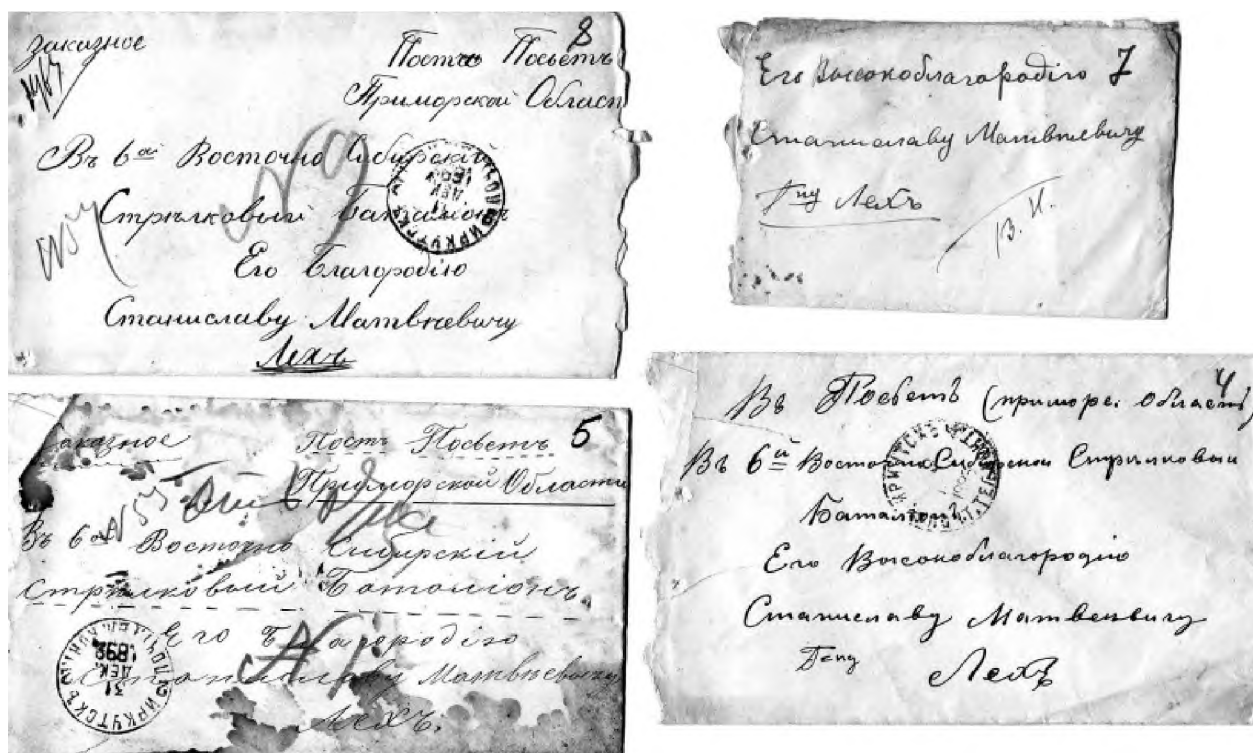 заказное
8
Постъ Посьетъ
Приморской Област
Въ 6ой Восточно Сибирский
№9
Стрѣлковый Баталионъ
Его Благородію
Станиславу Матвѣевичу
Лехъ
ИРКУТСКЪ
ДЕК
Его Высокоблагородію 7
Станиславу Матвѣевичу
Гну Лехъ
В. И.
Заказное
Постъ Посветъ 5
Приморской Области
Въ 6ой Восточно Сибирскій
Стрѣлковый Баталіонъ
Его Благородію
Станиславу Матвѣевичу
Лехъ.
ИРКУТСКЪ
31
ДЕК.
1892
4
Въ Посьетъ (приморс. область)
Въ 6й Восточно Сибирской Стрѣлковый
Баталіонъ
Его Высокоблагородію
Станиславу Матвеевичу
Гену
Лехъ
ИРКУТСКЪ